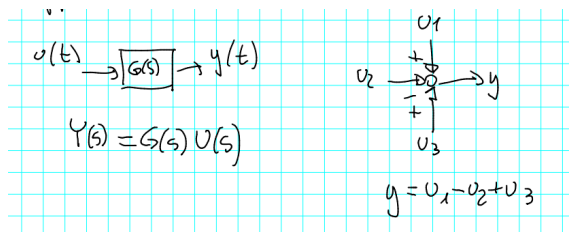 u(t) → G(s) → y(t)
Y(s) = G(s) U(s)
U1
+
U2 → y
−
+
U3
y = U1 - U2 + U3